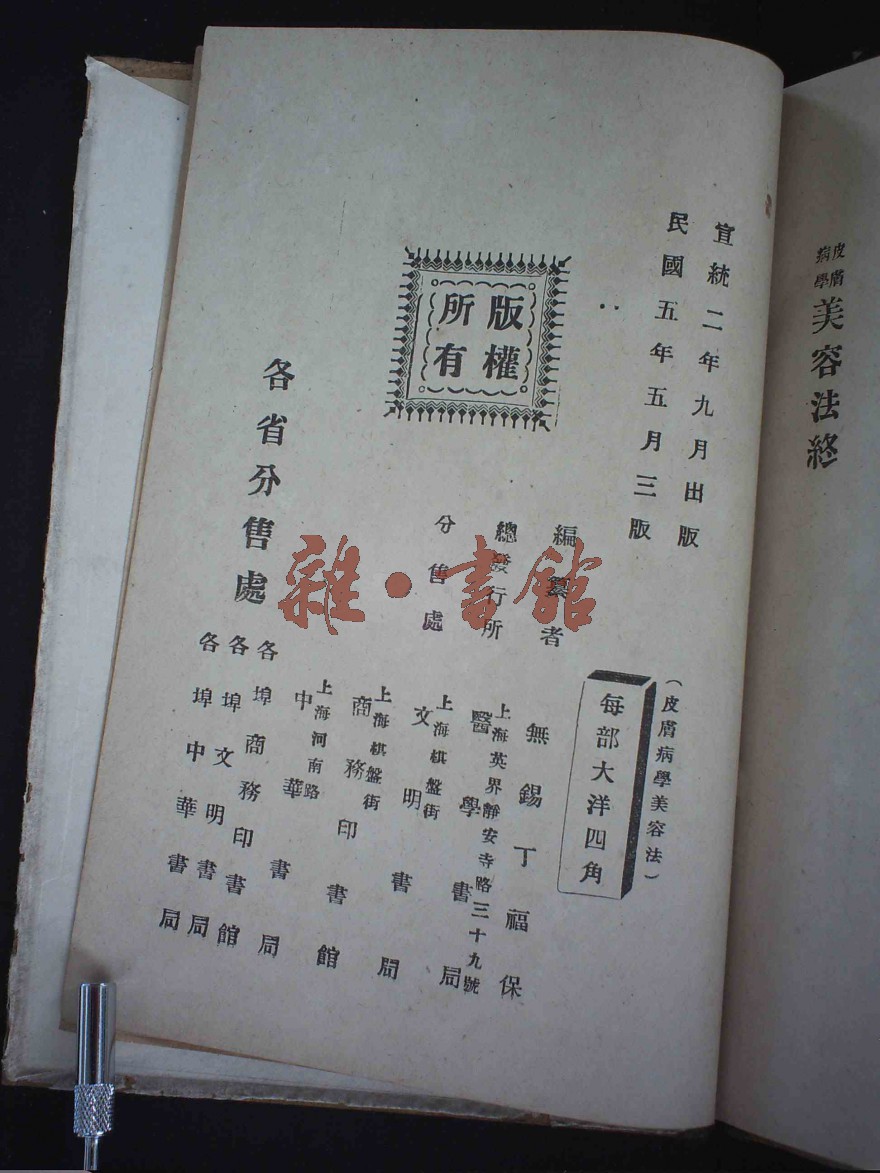 皮膚病學
美容法終
宣統二年九月出版
民國五年五月三版
版權
所有
(皮膚病學美容法)
每部大洋四角
編纂者
無錫丁福保
總發行所
上海英界靜安寺路三十九號
醫學書局
分售處
上海棋盤街
文明書局
上海棋盤街
商務印書館
上海河南路
中華書局
各省分售處
各埠商務印書館
各埠文明書局
各埠中華書局
雜·書館